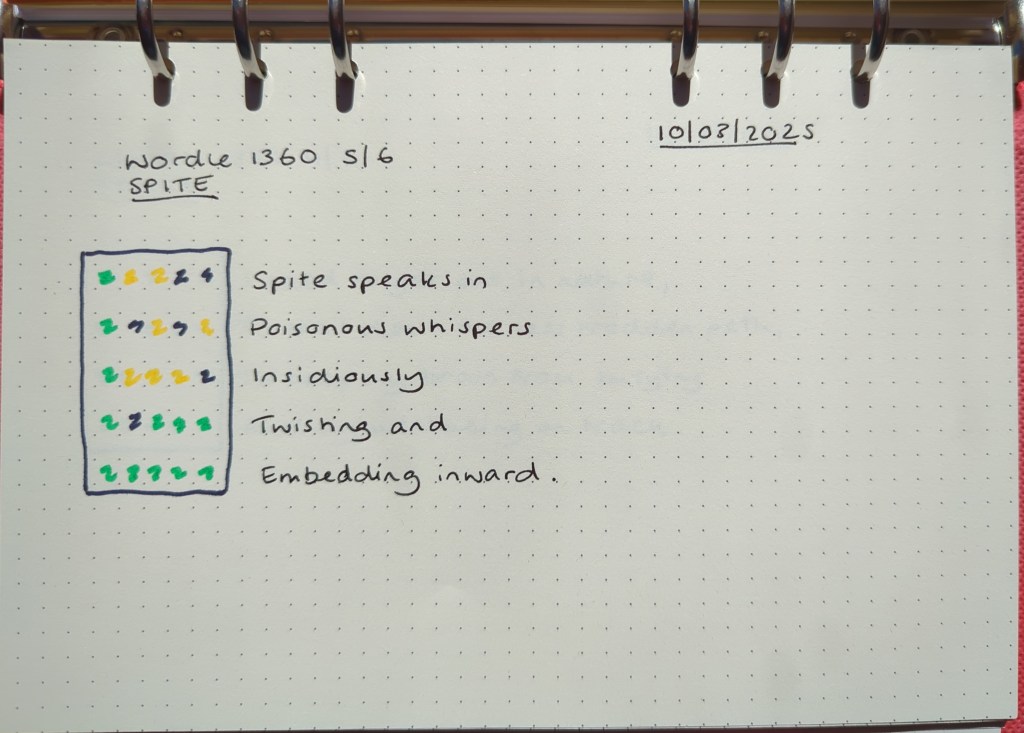 10/03/2025
Wordle 1360 5/6
SPITE
Spite speaks in
Poisonous whispers
Insidiously
Twisting and
Embedding inward.